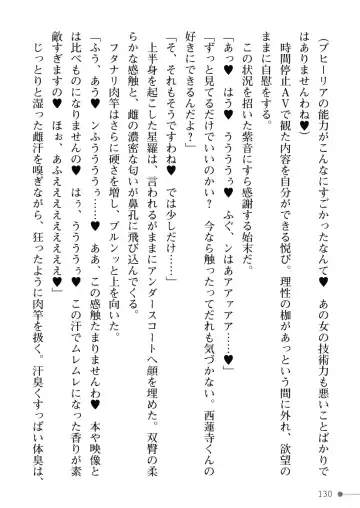 (ブヒーリアの能力がこんなにすごかったなんて♥　あの女の技術力も悪いことばかりで
はありませんわね♥)
時間停止ＡＶで観た内容を自分ができる悦び。理性の枷があっという間に外れ、欲望の
ままに自慰をする。
この状況を招いた紫音にすら感謝する始末だ。
「あっ♥　はう♥　うううう♥　ふぐ、ンはあアアアア……♥」
「ずっと見てるだけでいいのかい？　今なら触ったってだれも気づかない。西蓮寺くんの
好きにできるんだよ？」
「そ、それもそうですわね♥　では少しだけ……」
上半身を起こした星羅は、言われるがままにアンダースコートへ顔を埋めた。双臀の柔
らかな感触と、雌の濃密な匂いが鼻孔に飛び込んでくる。
フタナリ肉竿はさらに硬さを増し、ブルンッと上を向いた。
「ふう、あう♥　ンふうううぅ……♥　ああ、この感触たまりませんわ♥　本や映像と
は比べものになりませんの♥　はぅ、うううぅ♥　この汗でムレムレになった香りが素
敵すぎますの♥　ほぉ、あふええええええええ♥」
じっとりと湿った雌汗を嗅ぎながら、狂ったように肉竿を扱く。汗臭くすっぱい体臭は、
130